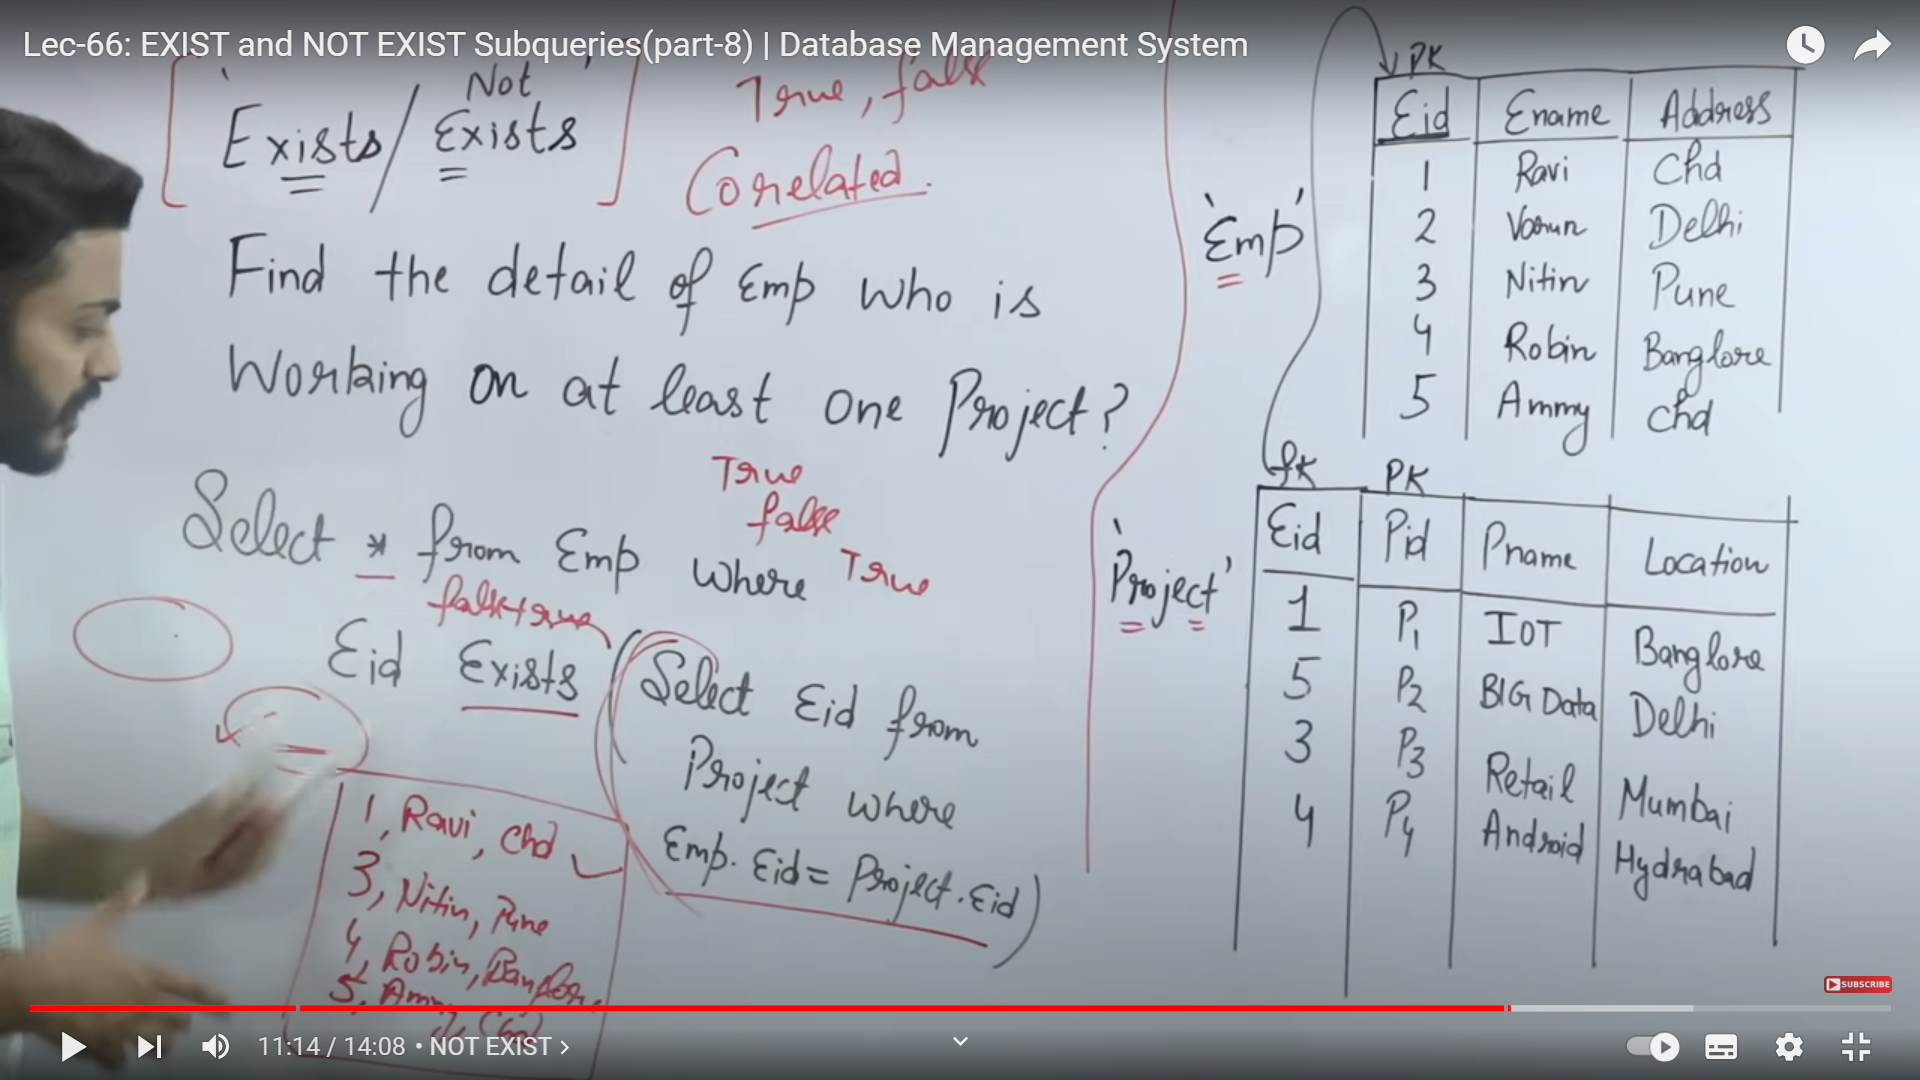 Lec-66: EXIST and NOT EXIST Subqueries(part-8) | Database Management System
Not
'Exists/Exists'
True, false
Corelated.
Find the detail of Emp Who is
Working on at least one Project?
True
false
Select * from Emp Where True
false true
Eid Exists (Select Eid from
Project where
Emp.Eid = Project.Eid)
1, Ravi, Chd
3, Nitin, Pune
4, Robin, Banglore
5, Ammy, Chd
'Emp'
PK
Eid Ename Address
1 Ravi Chd
2 Varun Delhi
3 Nitin Pune
4 Robin Banglore
5 Ammy Chd
'Project'
fK PK
Eid Pid Pname Location
1 P1 IOT Banglore
5 P2 BIG Data Delhi
3 P3 Retail Mumbai
4 P4 Android Hydrabad
SUBSCRIBE
11:14 / 14:08 • NOT EXIST >